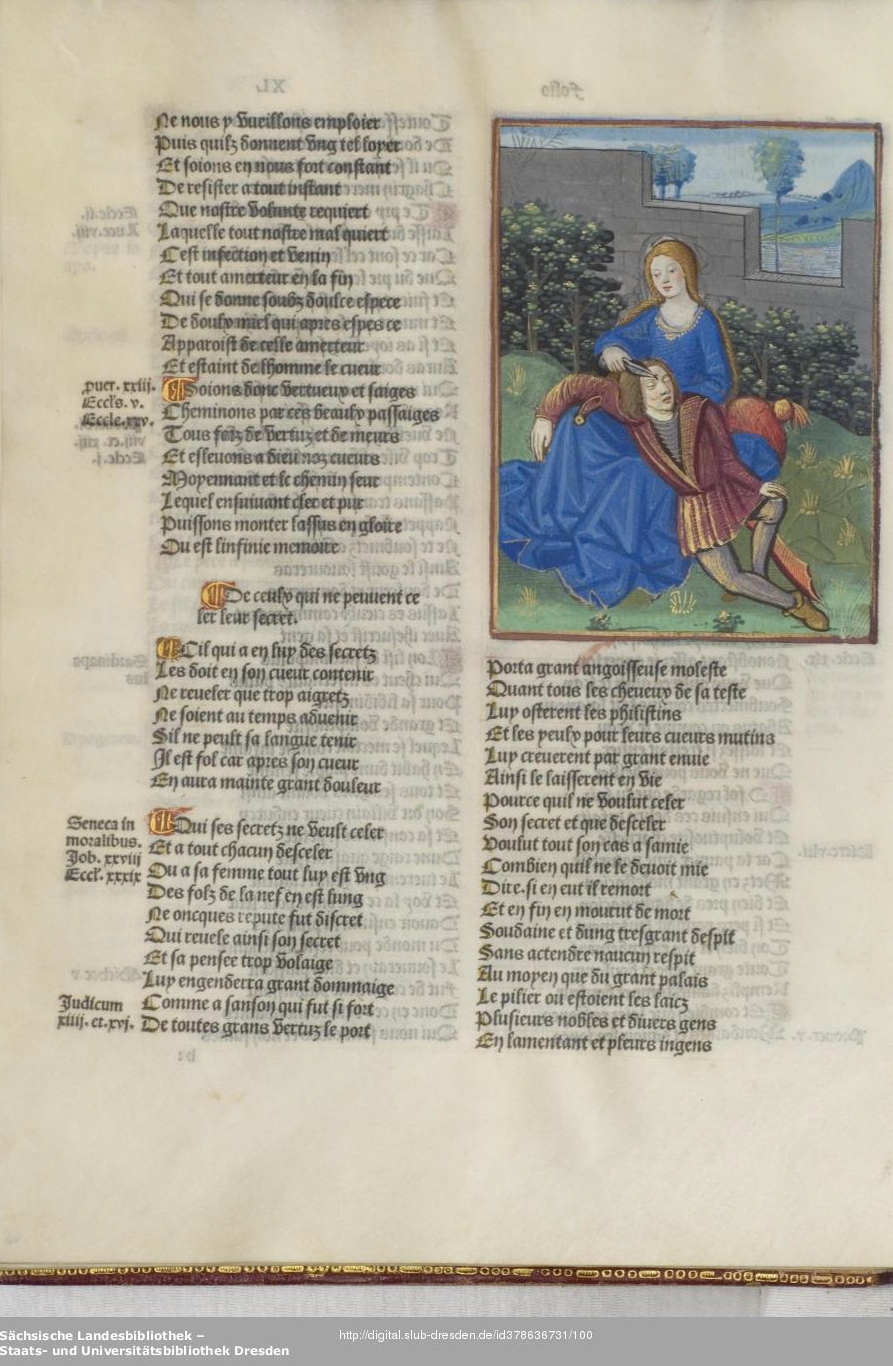 Ne nous y vueillons emploier
Puis quilz donnent vng tel loyer
Et soions en nous fort constant
De resister a tout instant
Que nostre volunte requiert
Laquelle tout nostre mal quiert
Cest infection et venin
Et tout amerteur en la fin
Qui se donne soubz doulce espece
De doulx miel qui apres espes ce
Apparoist de celle amerteur
Et estaint de lhomme le cueur
puer. xxiij.
Eccls. v.
Eccle. xxv.
Soions donc vertueux et saiges
Cheminons par ces beaulx passaiges
Tous folz de vertuz et de meurs
Et esleuons a dieu noz cueurs
Moyennant et le chemin seur
Lequel ensuiuant cler et pur
Puissons monter lassus en gloire
Ou est linfinie memoire
De ceulx qui ne peuuent ce
ler leur secret.
Cil qui a en luy des secretz
Les doit en son cueur contenir
Ne reueler que trop aigretz
Ne soient au temps aduenir
Sil ne peult sa langue tenir
Il est fol car apres son cueur
En aura mainte grant douleur
Seneca in
moralibus.
Job. xxviij
Eccl. xxxix
Qui ses secretz ne veult celer
Et a tout chacun desceler
Ou a sa femme tout luy est vng
Des folz de la nef en est lung
Ne oncques repute fut discret
Qui reuele ainsi son secret
Et sa pensee trop volaige
Luy engenderra grant dommaige
Judicum
xiiij. et. xvj.
Comme a sanson qui fut si fort
De toutes grans vertuz le port
Porta grant angoisseuse moleste
Quant tous les cheueux de sa teste
Luy osterent les philistins
Et les yeulx pour leurs cueurs mutins
Luy creuerent par grant enuie
Ainsi le laisserent en vie
Pource quil ne voulut celer
Son secret et que desceler
Voulut tout son cas a samie
Combien quil ne le deuoit mie
Dire. si en eut il remort
Et en fin en mourut de mort
Soudaine et dung tresgrant despit
Sans actendre naucun respit
Au moyen que du grant palais
Le pilier ou estoient les laicz
Plusieurs nobles et diuers gens
En lamentant et pleurs ingens
Sächsische Landesbibliothek –
Staats- und Universitätsbibliothek Dresden
http://digital.slub-dresden.de/id378636731/100